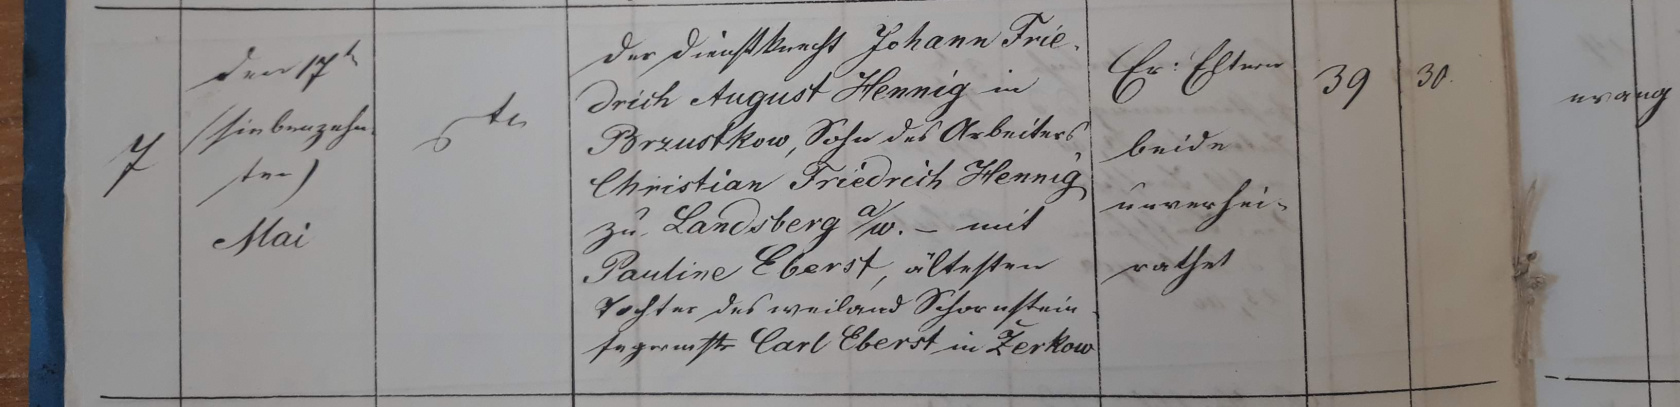 7
den 17t
(siebenzehn-
ten)
Mai
6 ten
der Dienstknecht Johann Frie-
drich August Hennig in
Brzustkow, Sohn des Arbeiters
Christian Friedrich Hennig
zu Landsberg a/w. – mit
Pauline Eberst, ältesten
Tochter des weiland Schornstein-
fegermstr Carl Eberst in Zerkow
Er: Eltern
beide
unverhei-
rathet
39
30.
evang